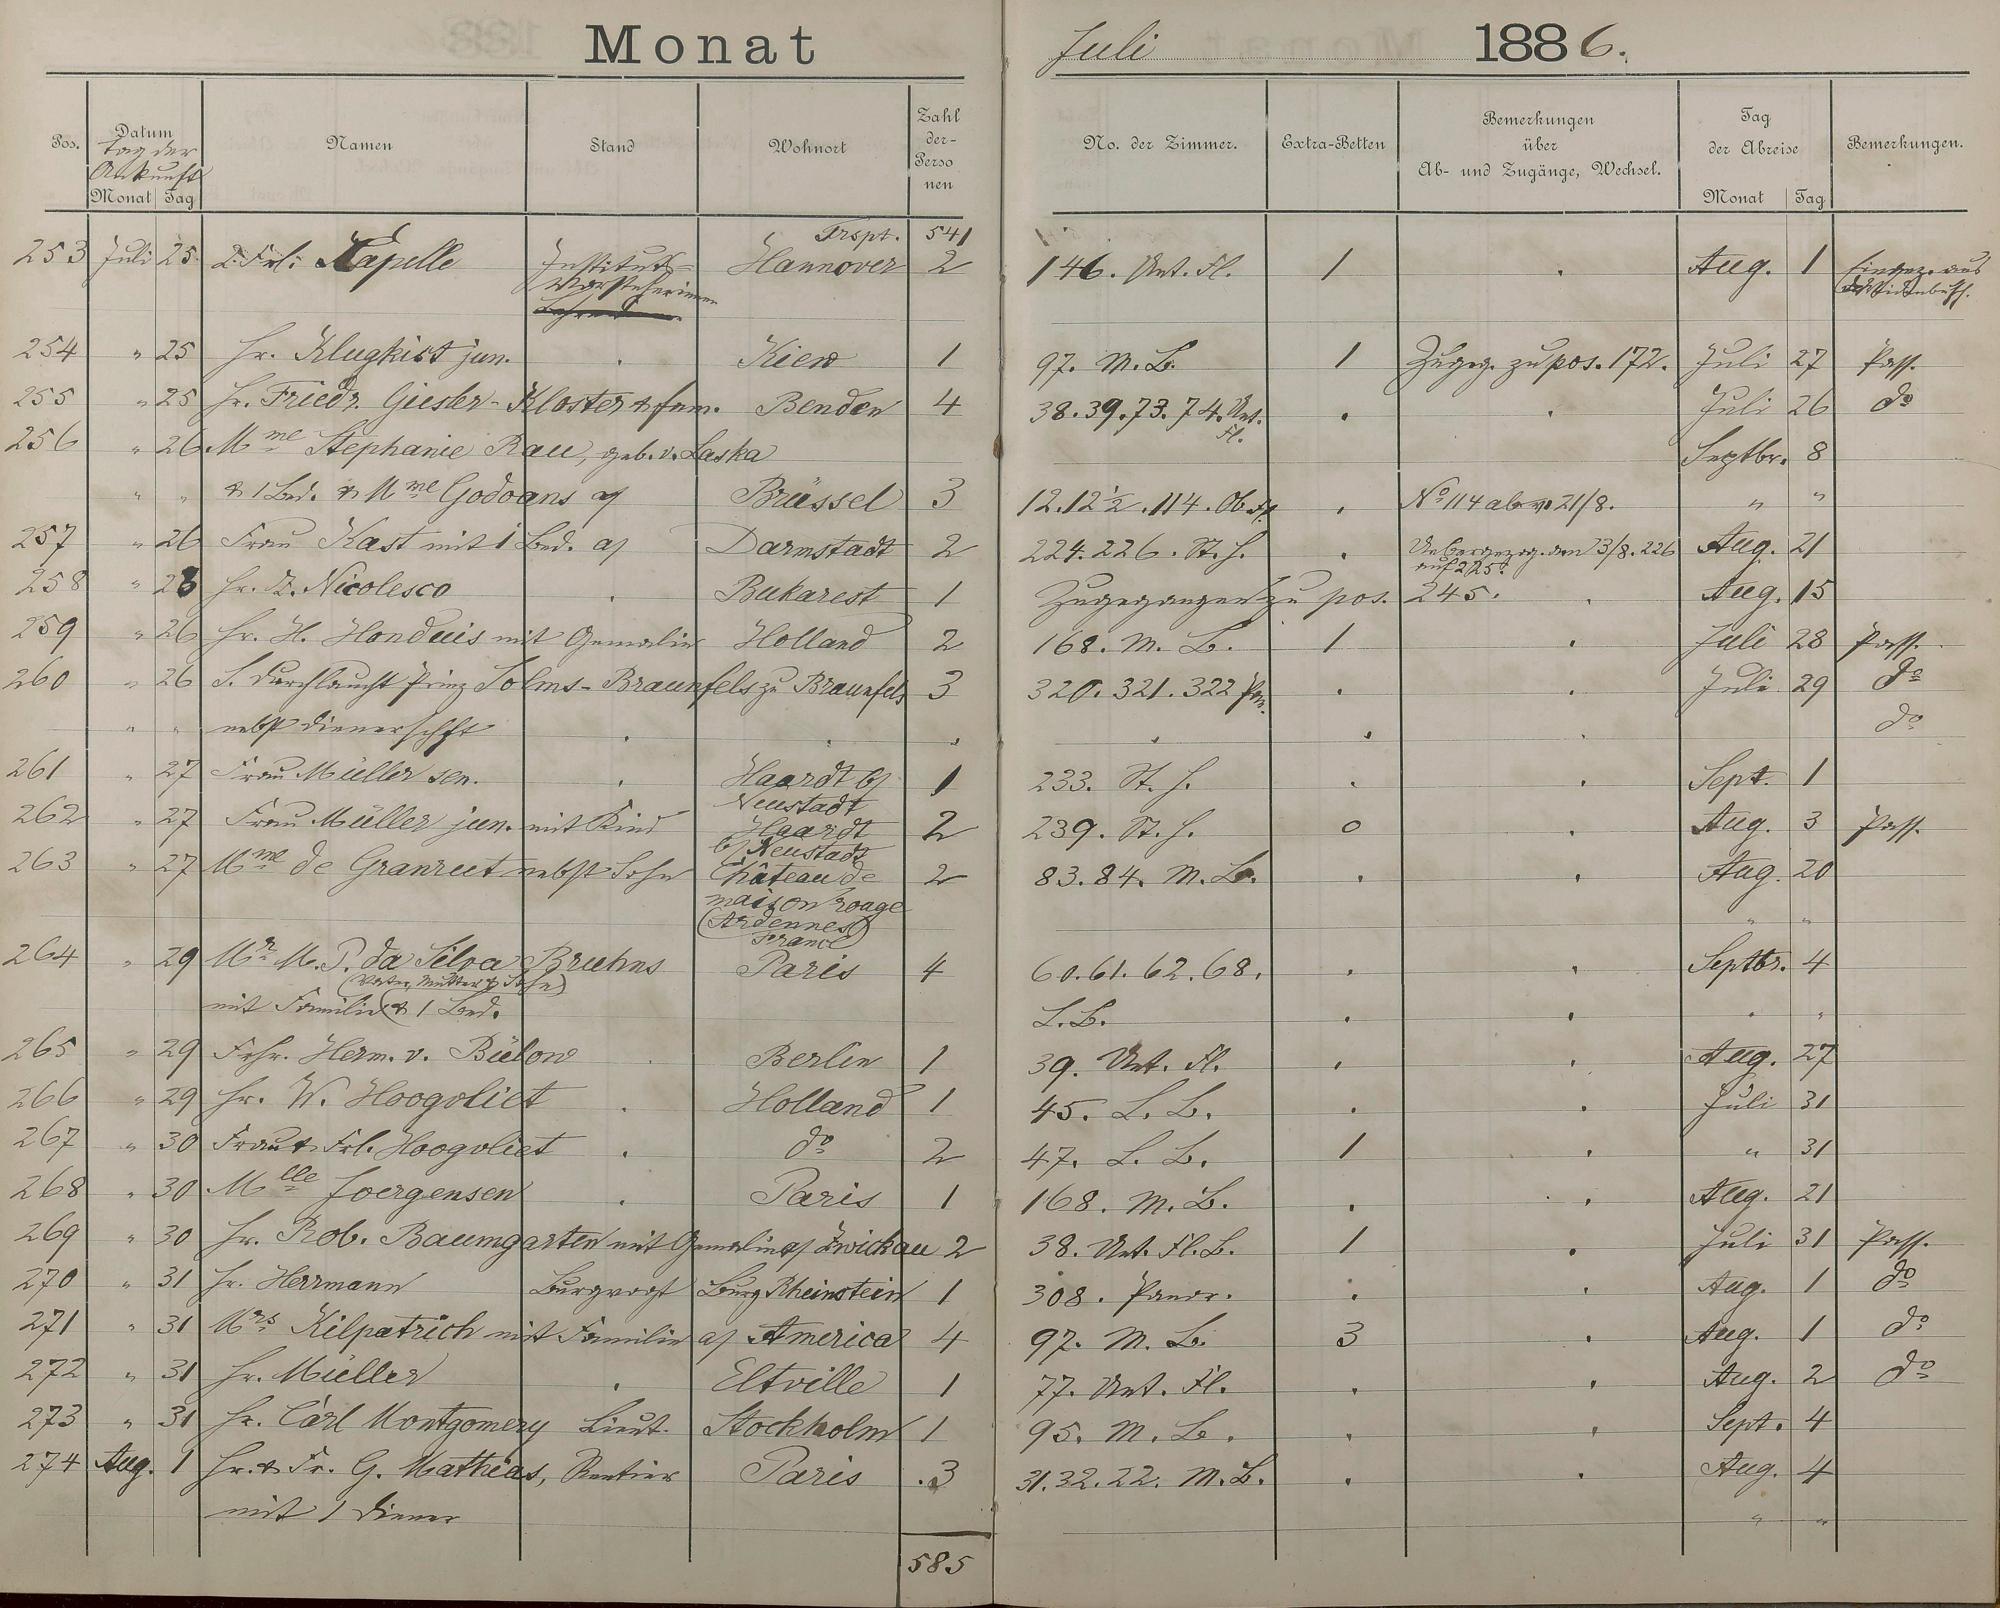 Monat Juli 1886.
Pos. Datum Tag der Ankunft Monat Tag Namen Stand Wohnort Zahl der Personen No. der Zimmer. Extra-Betten Bemerkungen über Ab- und Zugänge, Wechsel. Tag der Abreise Monat Tag Bemerkungen.
Trspt. 541
253 Juli 25. 2 Frl. Kapelle Instituts- Hannover 2 146. Unt. Fl. 1 Aug. 1 aus
Vorsteherinnen
254 " 25 Hr. Klugkist jun. Kiew 1 97. M. B. 1 Zugeg. zu pos. 172. Juli 27 Pass.
255 " 25 Hr. Friedr. Giesler-Kloster & Fam. Benden 4 38. 39. 73. 74. Unt. Fl. Juli 26 do
256 " 26 Mme Stephanie Rau, geb. v. Laska Septbr. 8
" " & 1 Bed. & Mme Godoans a/ Brüssel 3 12. 12½. 114. Ob. Fl. No 114 ab v. 21/8. " "
257 " 26 Frau Kast mit 1 Bed. a/ Darmstadt 2 224. 226. St. H. Uebergezog. den 3/8. 226 auf 225. Aug. 21
258 " 28 Hr. Z. Nicolesco Bukarest 1 Zugegangen zu pos. 245. Aug. 15
259 " 26 Hr. H. Honduis mit Gemalin Holland 2 168. M. B. 1 Juli 28 Pass.
260 " 26 S. Durchlaucht Prinz Solms-Braunfels zu Braunfels 3 320. 321. 322 Pan. Juli 29 do
" " nebst Dienerschft do
261 " 27 Frau Müller sen. Haardt b/ Neustadt 1 233. St. H. Sept. 1
262 " 27 Frau Müller jun. mit Kind Haardt b/ Neustadt 2 239. St. H. 0 Aug. 3 Pass.
263 " 27 Mme de Granrut nebst Sohn Château de 2 83. 84. M. B. Aug. 20
maison rouge
(Ardennes) " "
France
264 " 29 Mr M. P. da Silva Bruhns Paris 4 60. 61. 62. 68. Septbr. 4
(Vater, Mutter & Sohn)
mit Familie & 1 Bed. L. B. " "
265 " 29 Frhr. Herm. v. Bülow Berlin 1 39. Unt. Fl. Aug. 27
266 " 29 Hr. W. Hoogvliet Holland 1 45. L. B. Juli 31
267 " 30 Frau & Frl. Hoogvliet do 2 47. L. B. 1 " 31
268 " 30 Mlle Joergensen Paris 1 168. M. B. Aug. 21
269 " 30 Hr. Rob. Baumgarten mit Gemalin a/ Zwickau 2 38. Unt. Fl. B. 1 Juli 31 Pass.
270 " 31 Hr. Herrmann Burgvogt Burg Rheinstein 1 308. Panor. Aug. 1 do
271 " 31 Mrs Kilpatrich mit Familie a/ America 4 97. M. B. 3 Aug. 1 do
272 " 31 Hr. Müller Eltville 1 77. Unt. Fl. Aug. 2 do
273 " 31 Hr. Carl Montgomery Lieut. Stockholm 1 95. M. B. Sept. 4
274 Aug. 1 Hr. & Fr. G. Mathias, Rentier Paris 3 31. 32. 22. M. B. Aug. 4
mit 1 Diener " "
585